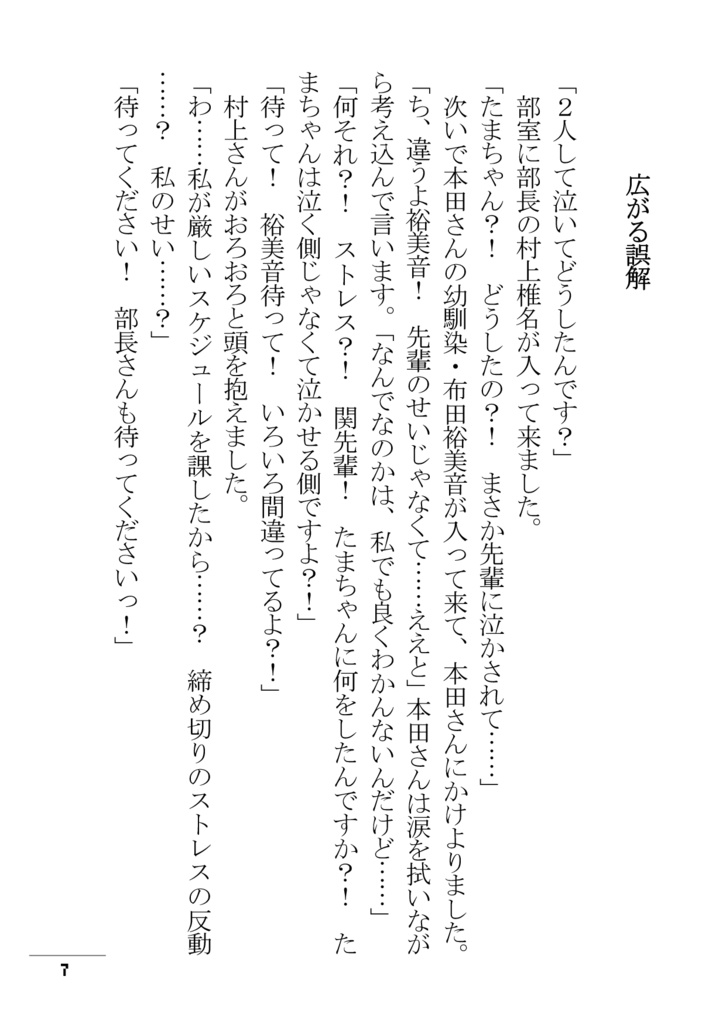 広がる誤解
「２人して泣いてどうしたんです？」
　部室に部長の村上椎名が入って来ました。
「たまちゃん？！　どうしたの？！　まさか先輩に泣かされて……」
　次いで本田さんの幼馴染・布田裕美音が入って来て、本田さんにかけよりました。
「ち、違うよ裕美音！　先輩のせいじゃなくて……ええと」本田さんは涙を拭いなが
ら考え込んで言います。「なんでなのかは、私でも良くわかんないんだけど……」
「何それ？！　ストレス？！　関先輩！　たまちゃんに何をしたんですか？！　た
まちゃんは泣く側じゃなくて泣かせる側ですよ？！」
「待って！　裕美音待って！　いろいろ間違ってるよ？！」
　村上さんがおろおろと頭を抱えました。
「わ……私が厳しいスケジュールを課したから……？　締め切りのストレスの反動
……？　私のせい……？」
「待ってください！　部長さんも待ってくださいっ！」
7